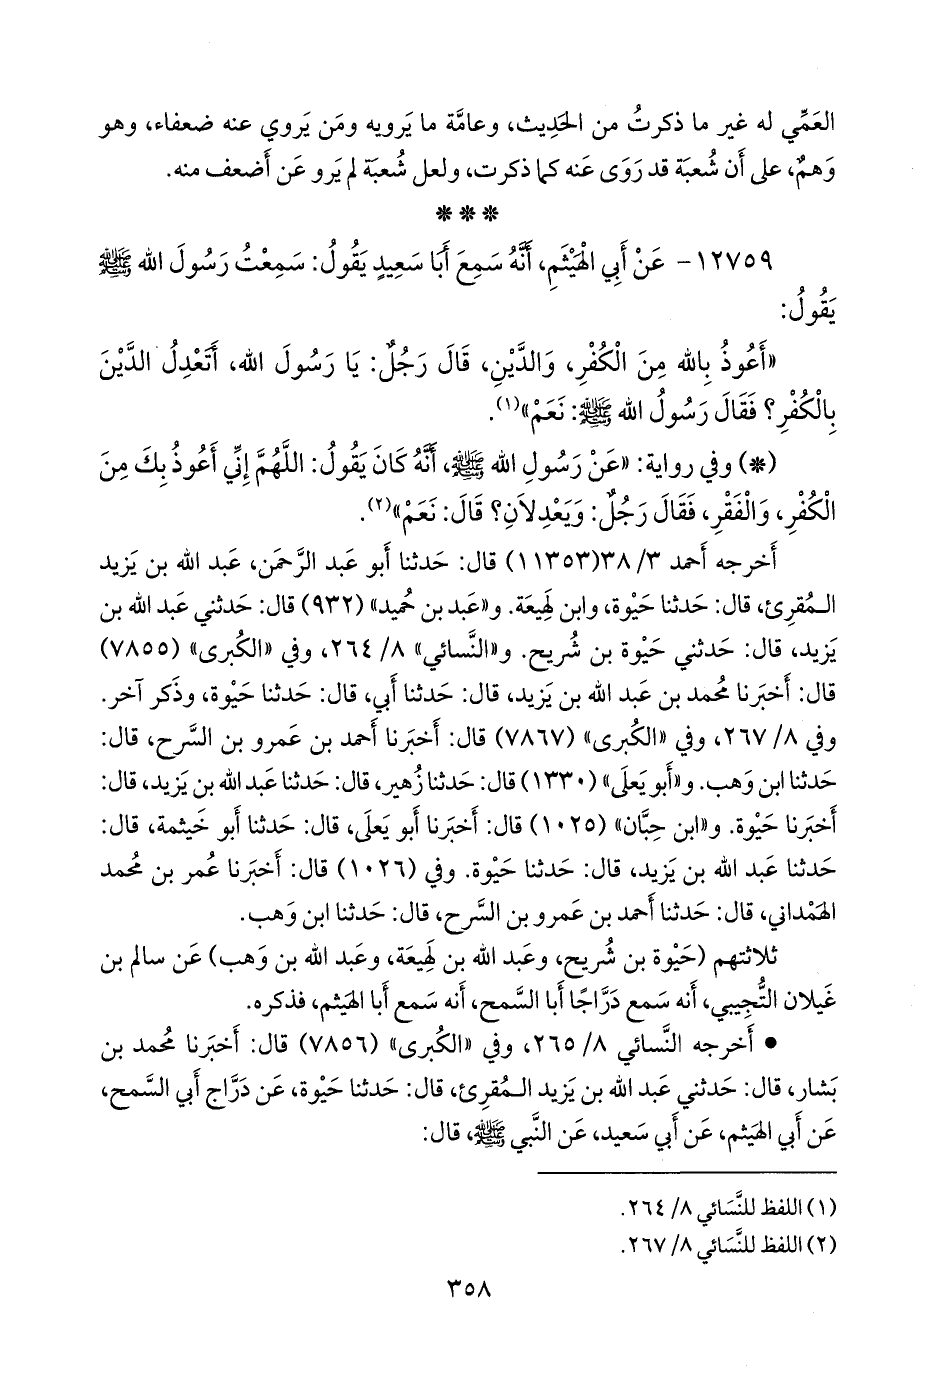 العَمِّي له غير ما ذكرتُ من الحَدِيث، وعامَّة ما يَرويه ومَن يَروي عنه ضعفاء، وهو
وَهمٌ، على أَن شُعبَة قد رَوَى عَنه كما ذكرت، ولعل شُعبَة لم يَرو عَن أَضعف منه.
* * *
١٢٧٥٩- عَنْ أَبِي الْهَيْثَمِ، أَنَّهُ سَمِعَ أَبَا سَعِيدٍ يَقُولُ: سَمِعْتُ رَسُولَ الله ﷺ
يَقُولُ:
«أَعُوذُ بِالله مِنَ الْكُفْرِ، وَالدَّيْنِ، قَالَ رَجُلٌ: يَا رَسُولَ الله، أَتَعْدِلُ الدَّيْنَ
بِالْكُفْرِ؟ فَقَالَ رَسُولُ الله ﷺ: نَعَمْ»(١).
(*) وفي رواية: «عَنْ رَسُولِ الله ﷺ، أَنَّهُ كَانَ يَقُولُ: اللَّهُمَّ إِنِّي أَعُوذُ بِكَ مِنَ
الْكُفْرِ، وَالْفَقْرِ، فَقَالَ رَجُلٌ: وَيَعْدِلاَنِ؟ قَالَ: نَعَمْ»(٢).
أَخرجه أَحمد ٣/ ٣٨(١١٣٥٣) قال: حَدثنا أَبو عَبد الرَّحمَن، عَبد الله بن يَزيد
المُقرِئ، قال: حَدثنا حَيْوة، وابن لَهِيعَة. و«عَبد بن حُميد» (٩٣٢) قال: حَدثني عَبد الله بن
يَزيد، قال: حَدثني حَيْوة بن شُريح. و«النَّسائي» ٨/ ٢٦٤، وفي «الكُبرى» (٧٨٥٥)
قال: أَخبَرنا مُحمد بن عَبد الله بن يَزيد، قال: حَدثنا أَبي، قال: حَدثنا حَيْوة، وذَكر آخر.
وفي ٨/ ٢٦٧، وفي «الكُبرى» (٧٨٦٧) قال: أَخبَرنا أَحمد بن عَمرو بن السَّرح، قال:
حَدثنا ابن وَهب. و«أَبو يَعلَى» (١٣٣٠) قال: حَدثنا زُهير، قال: حَدثنا عَبد الله بن يَزيد، قال:
أَخبَرنا حَيْوة. و«ابن حِبَّان» (١٠٢٥) قال: أَخبَرنا أَبو يَعلَى، قال: حَدثنا أَبو خَيثمة، قال:
حَدثنا عَبد الله بن يَزيد، قال: حَدثنا حَيْوة. وفي (١٠٢٦) قال: أَخبَرنا عُمر بن مُحمد
الهَمْداني، قال: حَدثنا أَحمد بن عَمرو بن السَّرح، قال: حَدثنا ابن وَهب.
ثلاثتهم (حَيْوة بن شُريح، وعَبد الله بن لَهِيعَة، وعَبد الله بن وَهب) عَن سالم بن
غَيلان التُّجِيبي، أَنه سَمع دَرَّاجًا أَبا السَّمح، أَنه سَمع أَبا الهَيثم، فذكره.
• أَخرجه النَّسائي ٨/ ٢٦٥، وفي «الكُبرى» (٧٨٥٦) قال: أَخبَرنا مُحمد بن
بَشار، قال: حَدثني عَبد الله بن يَزيد المُقرِئ، قال: حَدثنا حَيْوة، عَن دَرَّاج أَبي السَّمح،
عَن أَبي الهَيثم، عَن أَبي سَعيد، عَن النَّبي ﷺ، قال:
(١) اللفظ للنَّسَائي ٨/ ٢٦٤.
(٢) اللفظ للنَّسَائي ٨/ ٢٦٧.
٣٥٨